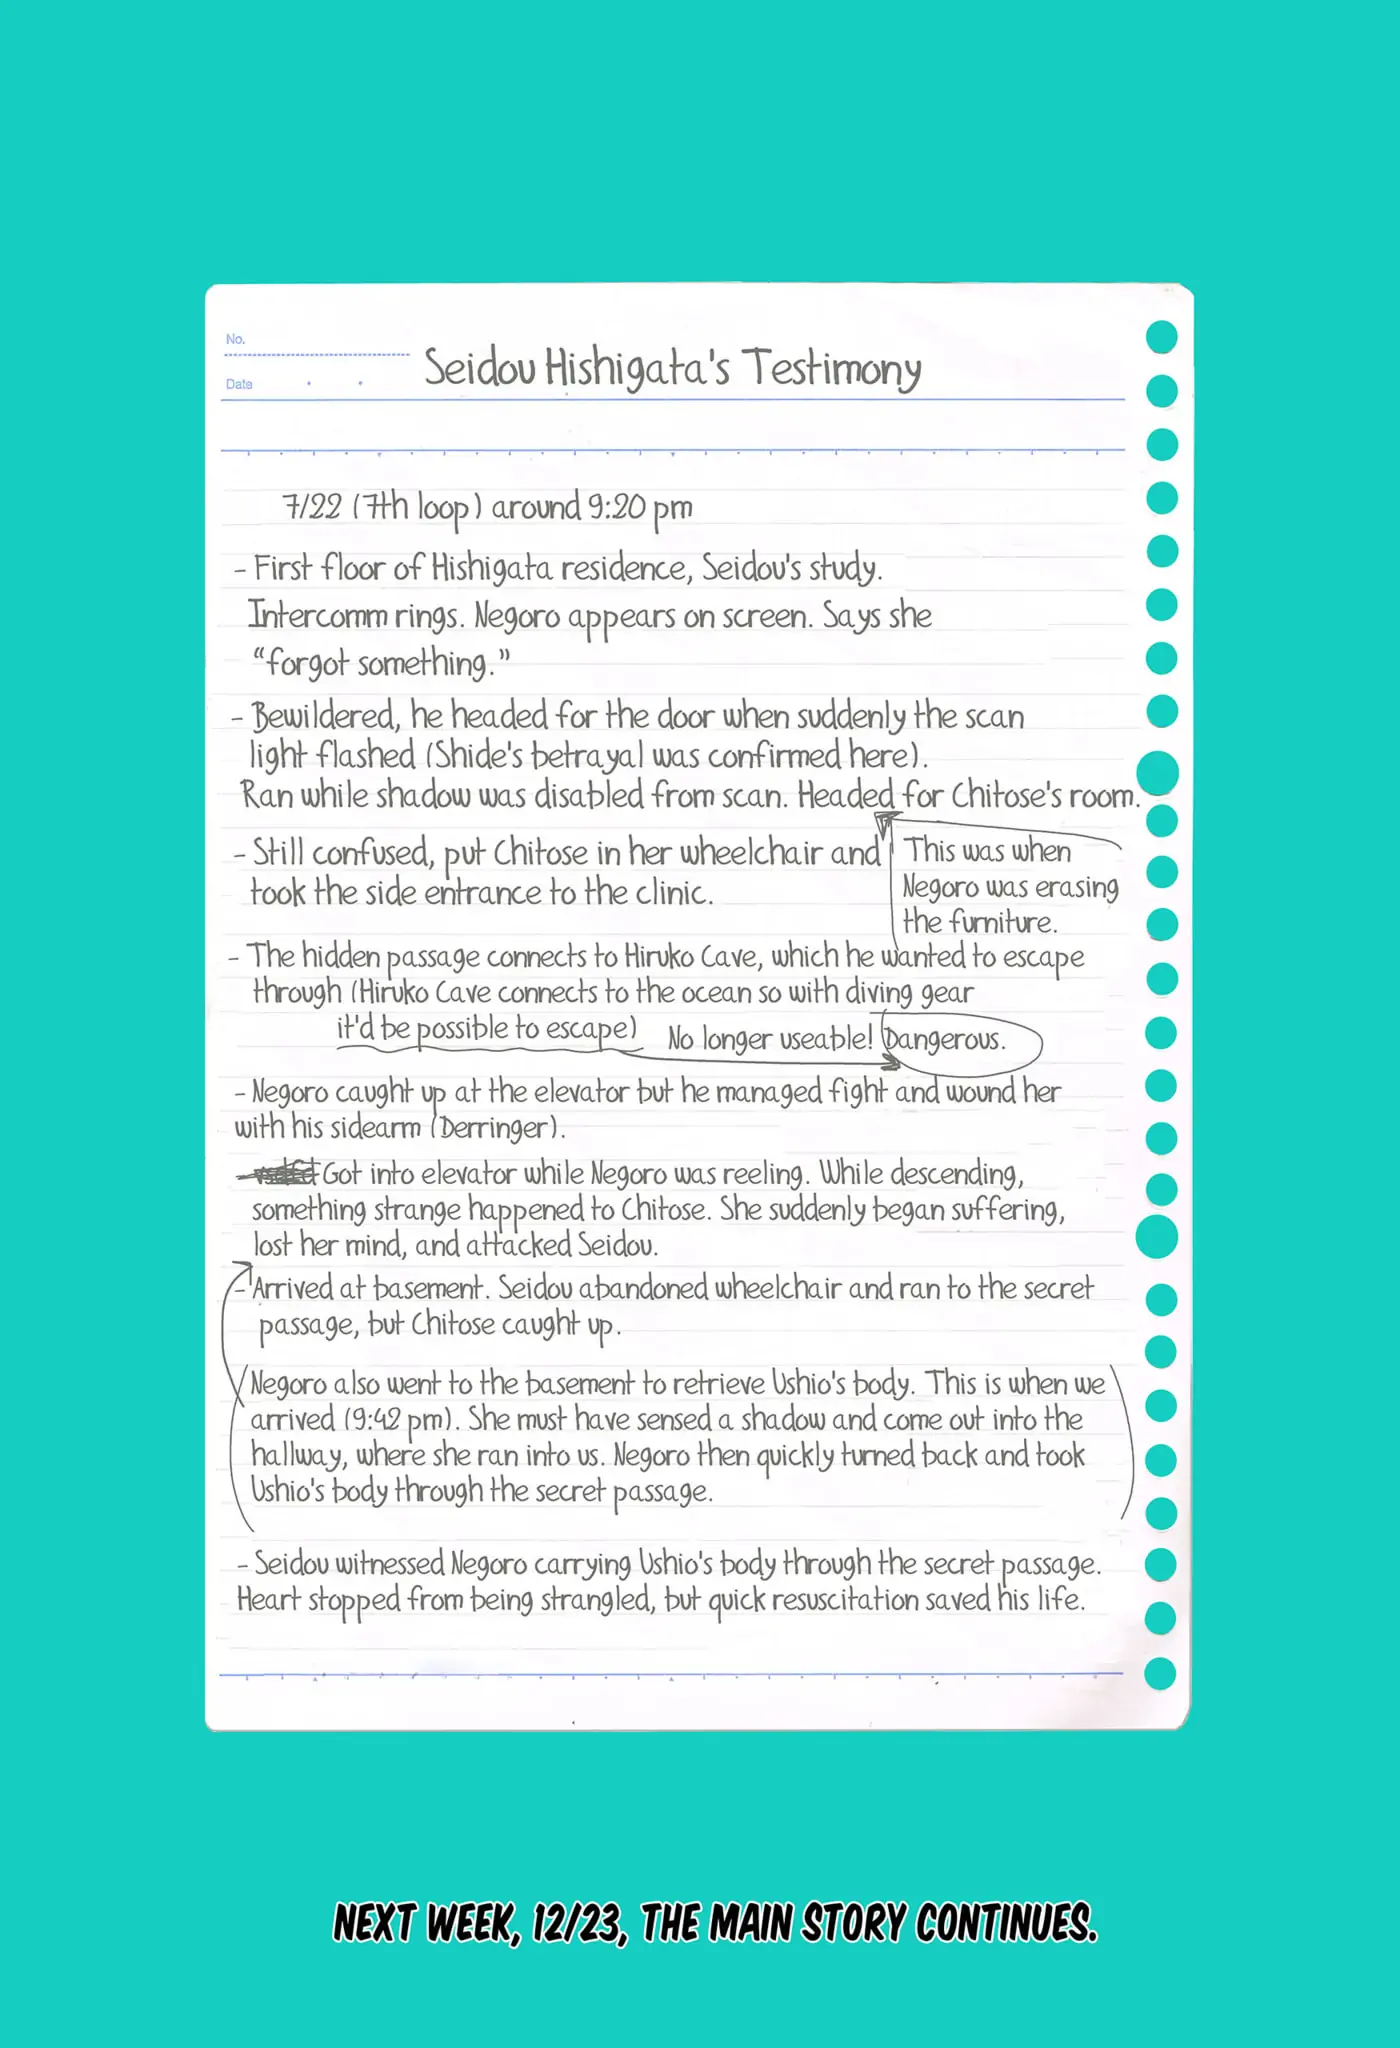 No.
Date
Seidou Hishigata's Testimony
7/22 (7th loop) around 9:20 pm
- First floor of Hishigata residence, Seidou's study.
Intercomm rings. Negoro appears on screen. Says she
"forgot something."
- Bewildered, he headed for the door when suddenly the scan
light flashed (Shide's betrayal was confirmed here).
Ran while shadow was disabled from scan. Headed for Chitose's room.
- Still confused, put Chitose in her wheelchair and
took the side entrance to the clinic.
This was when
Negoro was erasing
the furniture.
- The hidden passage connects to Hiruko Cave, which he wanted to escape
through (Hiruko Cave connects to the ocean so with diving gear
it'd be possible to escape)
No longer useable! Dangerous.
- Negoro caught up at the elevator but he managed fight and wound her
with his sidearm (Derringer).
Got into elevator while Negoro was reeling. While descending,
something strange happened to Chitose. She suddenly began suffering,
lost her mind, and attacked Seidou.
- Arrived at basement. Seidou abandoned wheelchair and ran to the secret
passage, but Chitose caught up.
(Negoro also went to the basement to retrieve Ushio's body. This is when we
arrived (9:42 pm). She must have sensed a shadow and come out into the
hallway, where she ran into us. Negoro then quickly turned back and took
Ushio's body through the secret passage.)
- Seidou witnessed Negoro carrying Ushio's body through the secret passage.
Heart stopped from being strangled, but quick resuscitation saved his life.
NEXT WEEK, 12/23, THE MAIN STORY CONTINUES.